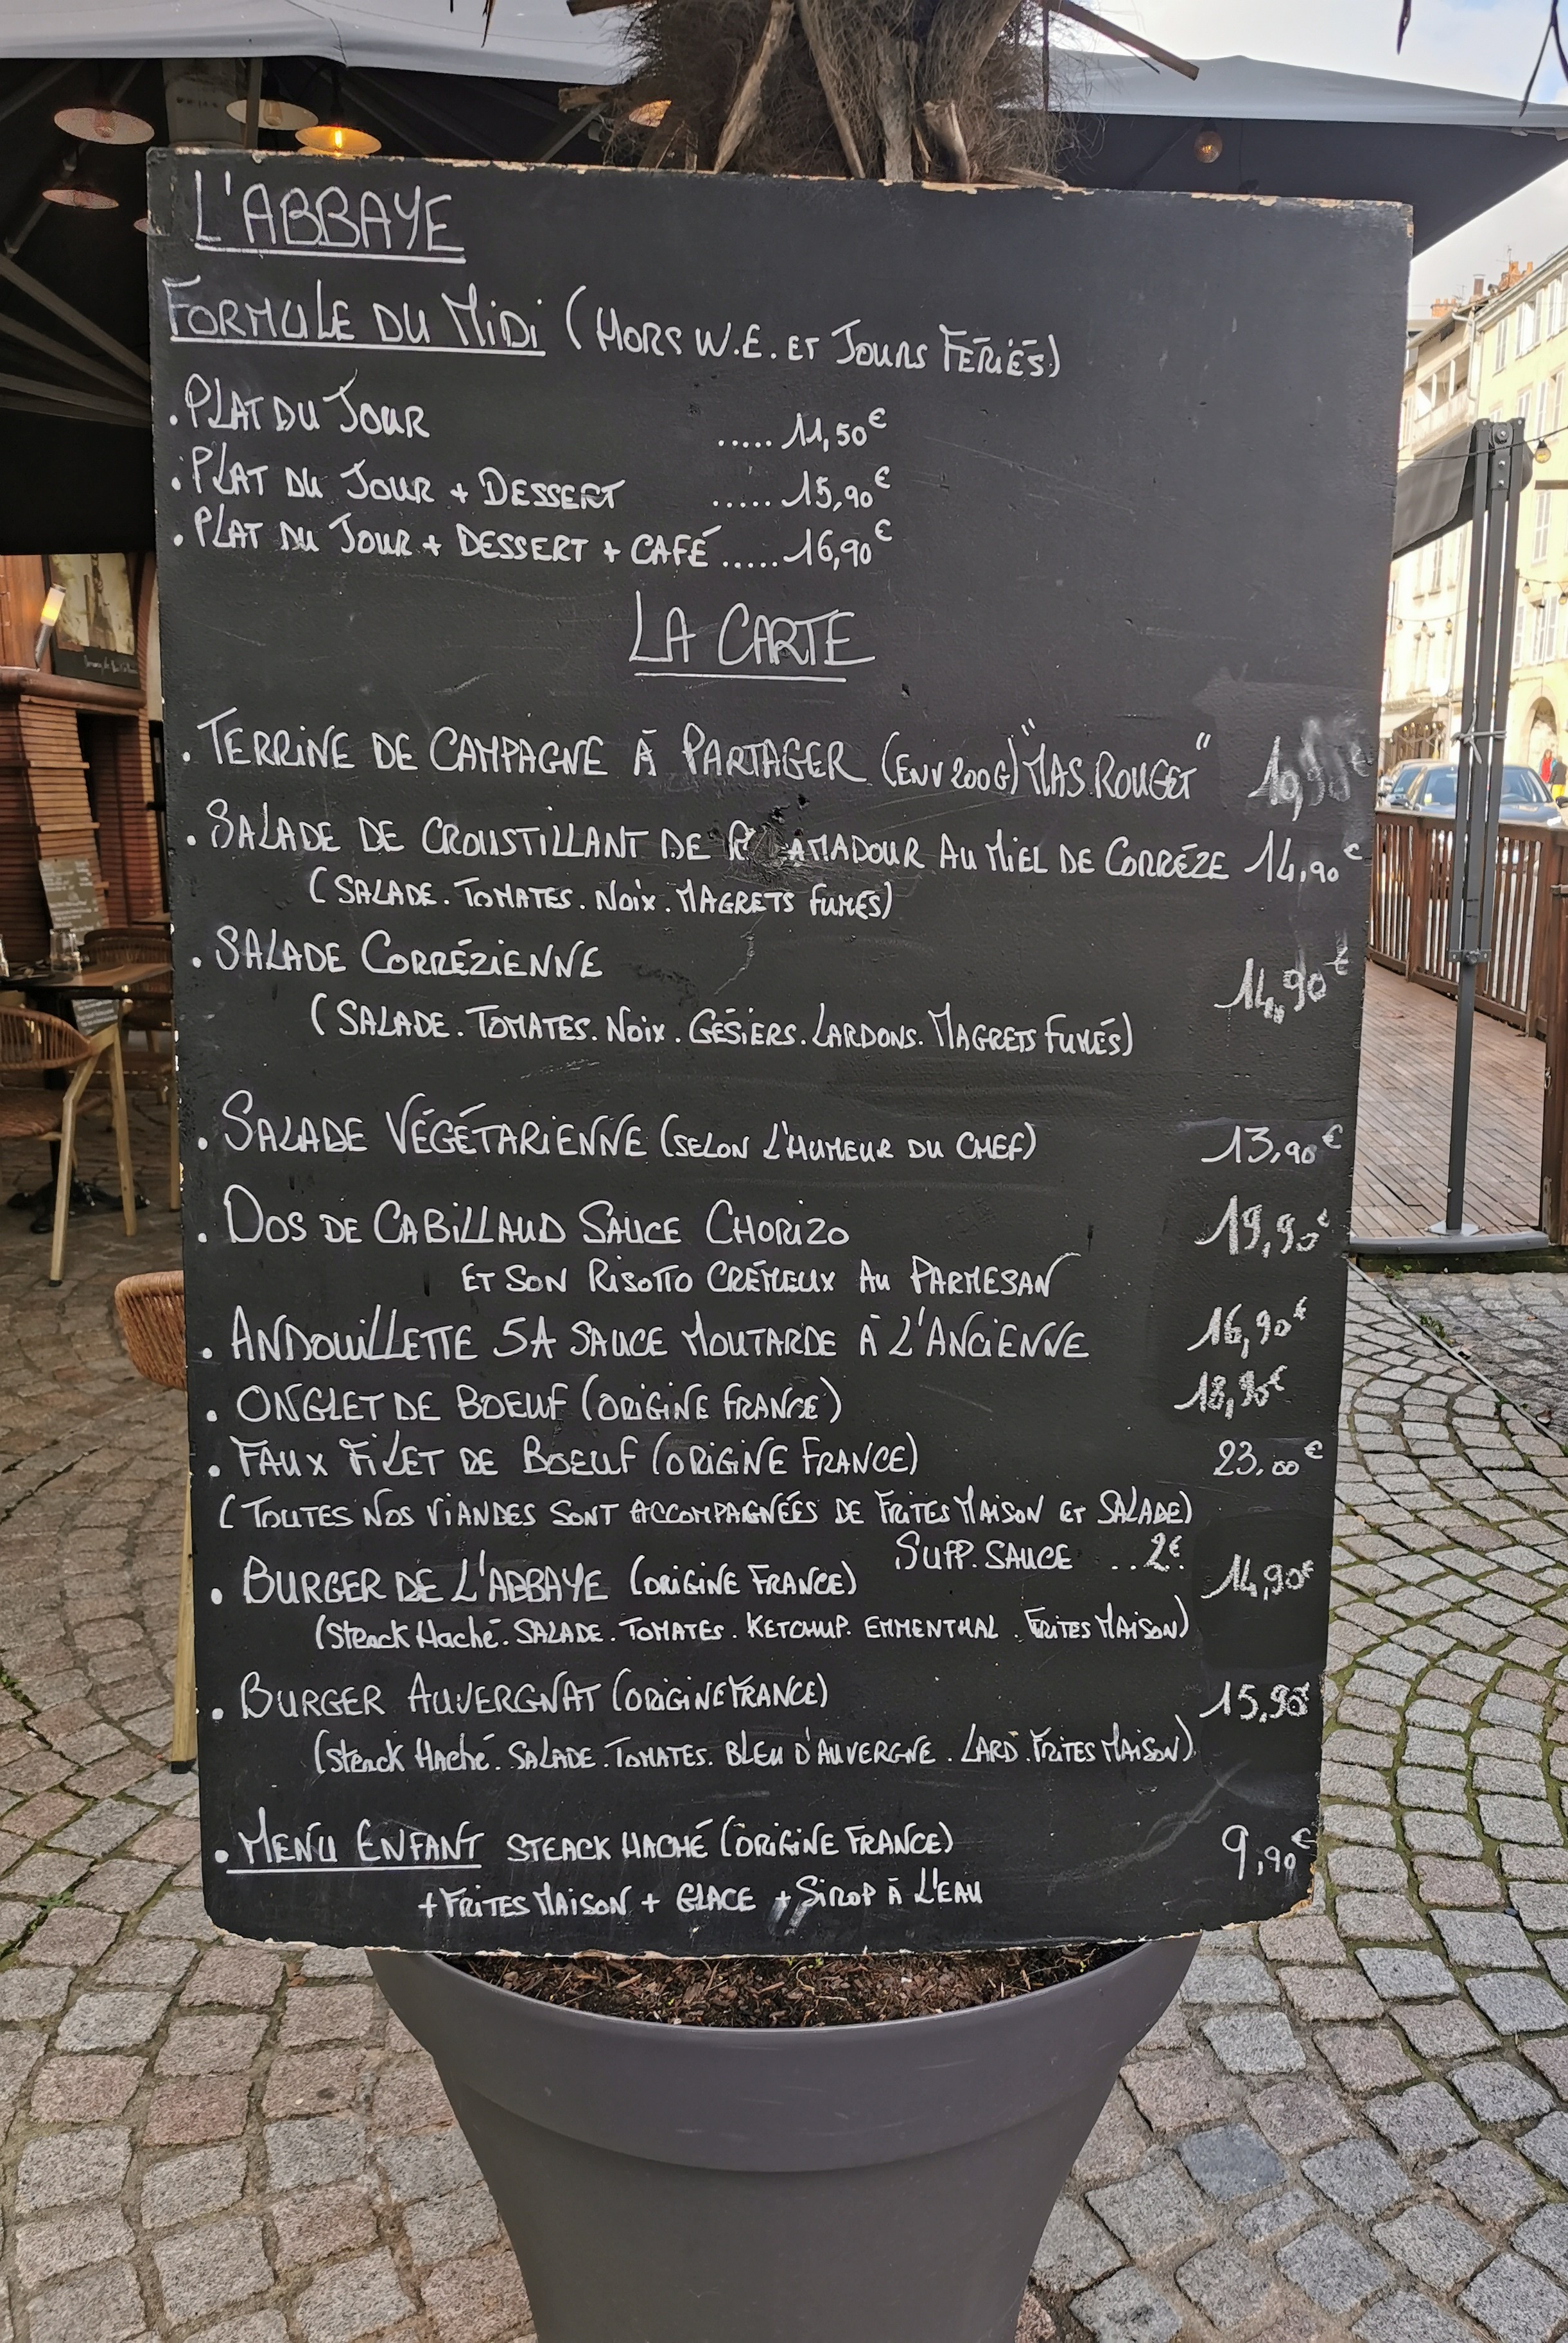 L'ABBAYE
FORMULE DU MIDI (HORS W.E. ET JOURS FÉRIÉS)
. PLAT DU JOUR ..... 11,50€
. PLAT DU JOUR + DESSERT ..... 15,90€
. PLAT DU JOUR + DESSERT + CAFÉ ..... 16,90€
LA CARTE
. TERRINE DE CAMPAGNE À PARTAGER (ENV 200G) "MAS ROUGET"
. SALADE DE CROUSTILLANT DE AU MIEL DE CORRÈZE 14,90€
(SALADE. TOMATES. NOIX. MAGRETS FUMÉS)
. SALADE CORRÉZIENNE 14,90€
(SALADE. TOMATES. NOIX. GÉSIERS. LARDONS. MAGRETS FUMÉS)
. SALADE VÉGÉTARIENNE (SELON L'HUMEUR DU CHEF) 13,90€
. DOS DE CABILLAUD SAUCE CHORIZO 19,90€
ET SON RISOTTO CRÉMEUX AU PARMESAN
. ANDOUILLETTE 5A SAUCE MOUTARDE À L'ANCIENNE 16,90€
. ONGLET DE BOEUF (ORIGINE FRANCE) 18,90€
. FAUX FILET DE BOEUF (ORIGINE FRANCE) 23,00€
(TOUTES NOS VIANDES SONT ACCOMPAGNÉES DE FRITES MAISON ET SALADE)
SUPP. SAUCE .. 2€
. BURGER DE L'ABBAYE (ORIGINE FRANCE) 14,90€
(Steack Haché. SALADE. TOMATES. KETCHUP. EMMENTHAL. FRITES MAISON)
. BURGER AUVERGNAT (ORIGINE FRANCE) 15,90€
(Steack Haché. SALADE. TOMATES. BLEU D'AUVERGNE. LARD. FRITES MAISON)
. MENU ENFANT STEACK HACHÉ (ORIGINE FRANCE) 9,90€
+ FRITES MAISON + GLACE + SIROP À L'EAU